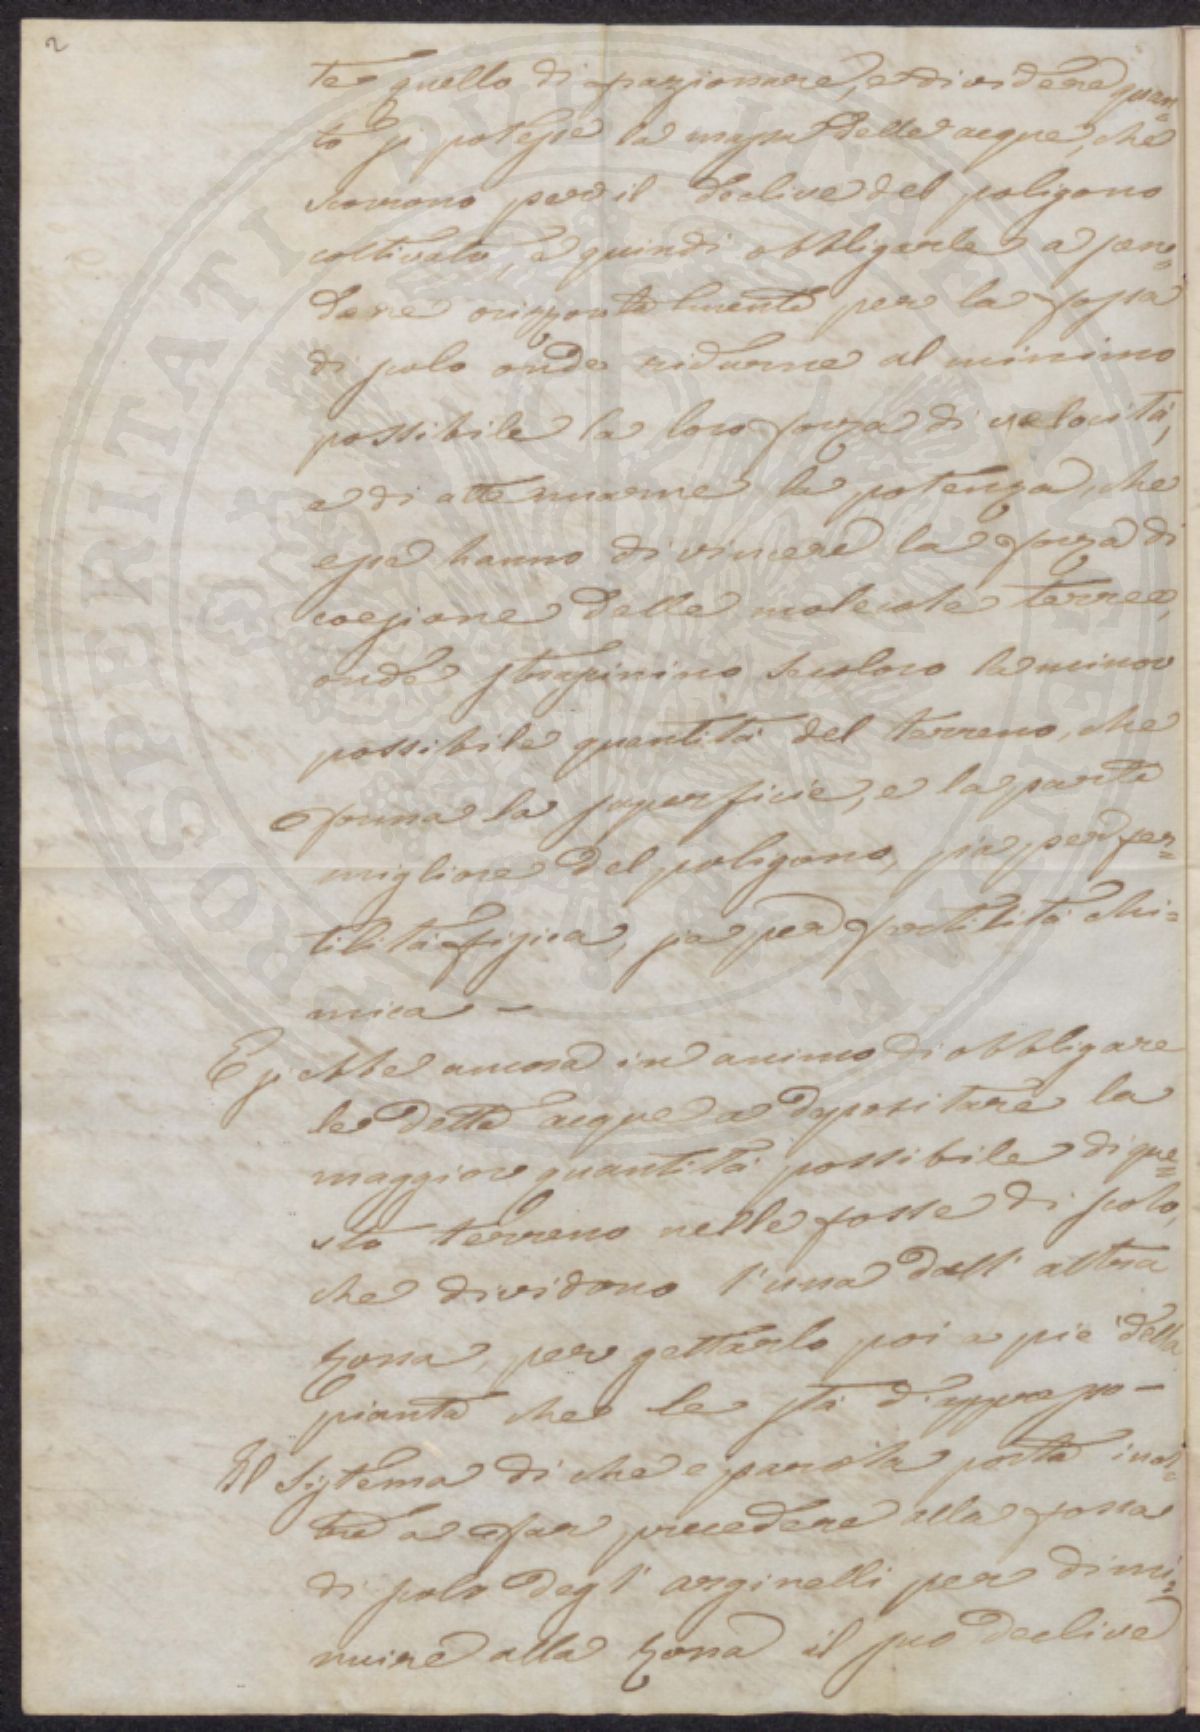 2
te quello di frazionare, e dividere quan=
to si potesse la massa delle acque, che
scorrono per il declive del poligono
coltivato, e quindi obbligarle a scen=
dere orizzontalmente per la fossa
di scolo onde ridurne al minimo
possibile la loro forza di velocità,
e di attenuarne la potenza, che
esse hanno di vincere la forza di
coesione delle molecole terree,
onde strascinino secoloro la minor
possibile quantità del terreno, che
forma la superficie, e la parte
migliore del poligono, sia per fer=
tilità fisica, sia per fertilità chi=
mica —
E si ebbe ancora in animo di obbligare
le dette acque a depositare la
maggior quantità possibile di que=
sto terreno nelle fosse di scolo,
che dividono l'una dall'altra
zona, per gettarlo poi a piè della
pianta che le sta d'appresso —
Il sistema di che è parola porta inol=
tre a far precedere alla fossa
di scolo degl'arginelli per dimi=
nuire alla zona il suo declive
PROSPERITATI PVBLICAE AVGENDAE